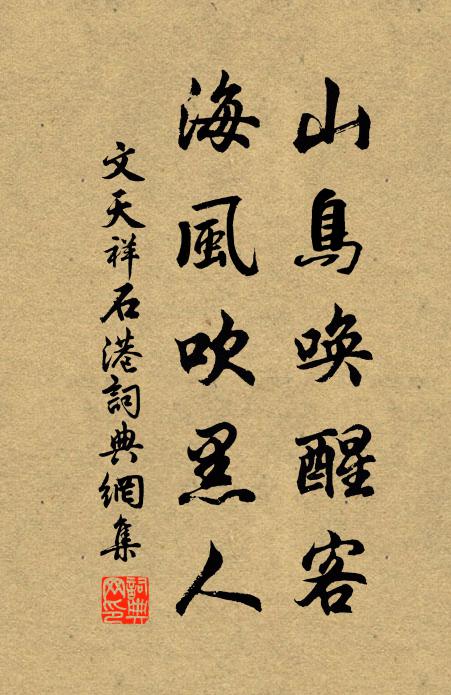 山鳥喚醒客
海風吹黑人
文天祥石港詞典網集
詞典網印